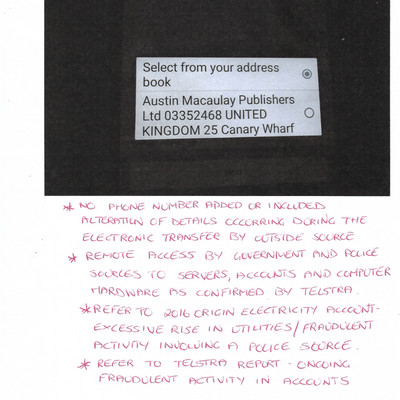 Select from your address
book
Austin Macaulay Publishers
Ltd 03352468 UNITED
KINGDOM 25 Canary Wharf
* NO PHONE NUMBER ADDED OR INCLUDED
ALTERATION OF DETAILS OCCORRING DURING THE
ELECTRONIC TRANSFER BY OUTSIDE SOURCE
* REMOTE ACCESS BY GOVERNMENT AND POLICE
SOURCES TO SERVERS, ACCOUNTS AND COMPUTER
HARDWARE AS CONFIRMED BY TELSTRA.
* REFER TO 2016 ORIGIN ELECTRICITY ACCOUNT-
EXCESSIVE RISE IN UTILITIES/FRAUDULENT
ACTIVITY INVOLVING A POLICE SOURCE.
* REFER TO TELSTRA REPORT - ONGOING
FRAUDULENT ACTIVITY IN ACCOUNTS